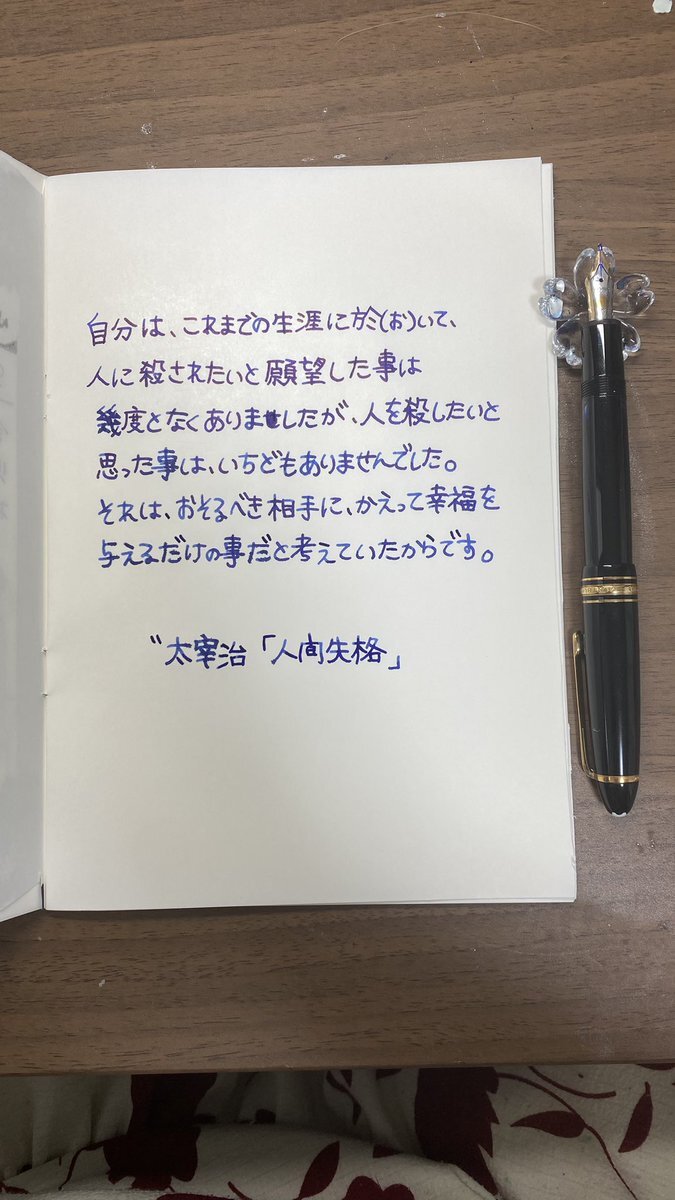 自分は、これまでの生涯に於(お)いて、
人に殺されたいと願望した事は
幾度となくありましたが、人を殺したいと
思った事は、いちどもありませんでした。
それは、おそるべき相手に、かえって幸福を
与えるだけの事だと考えていたからです。
〃太宰治「人間失格」